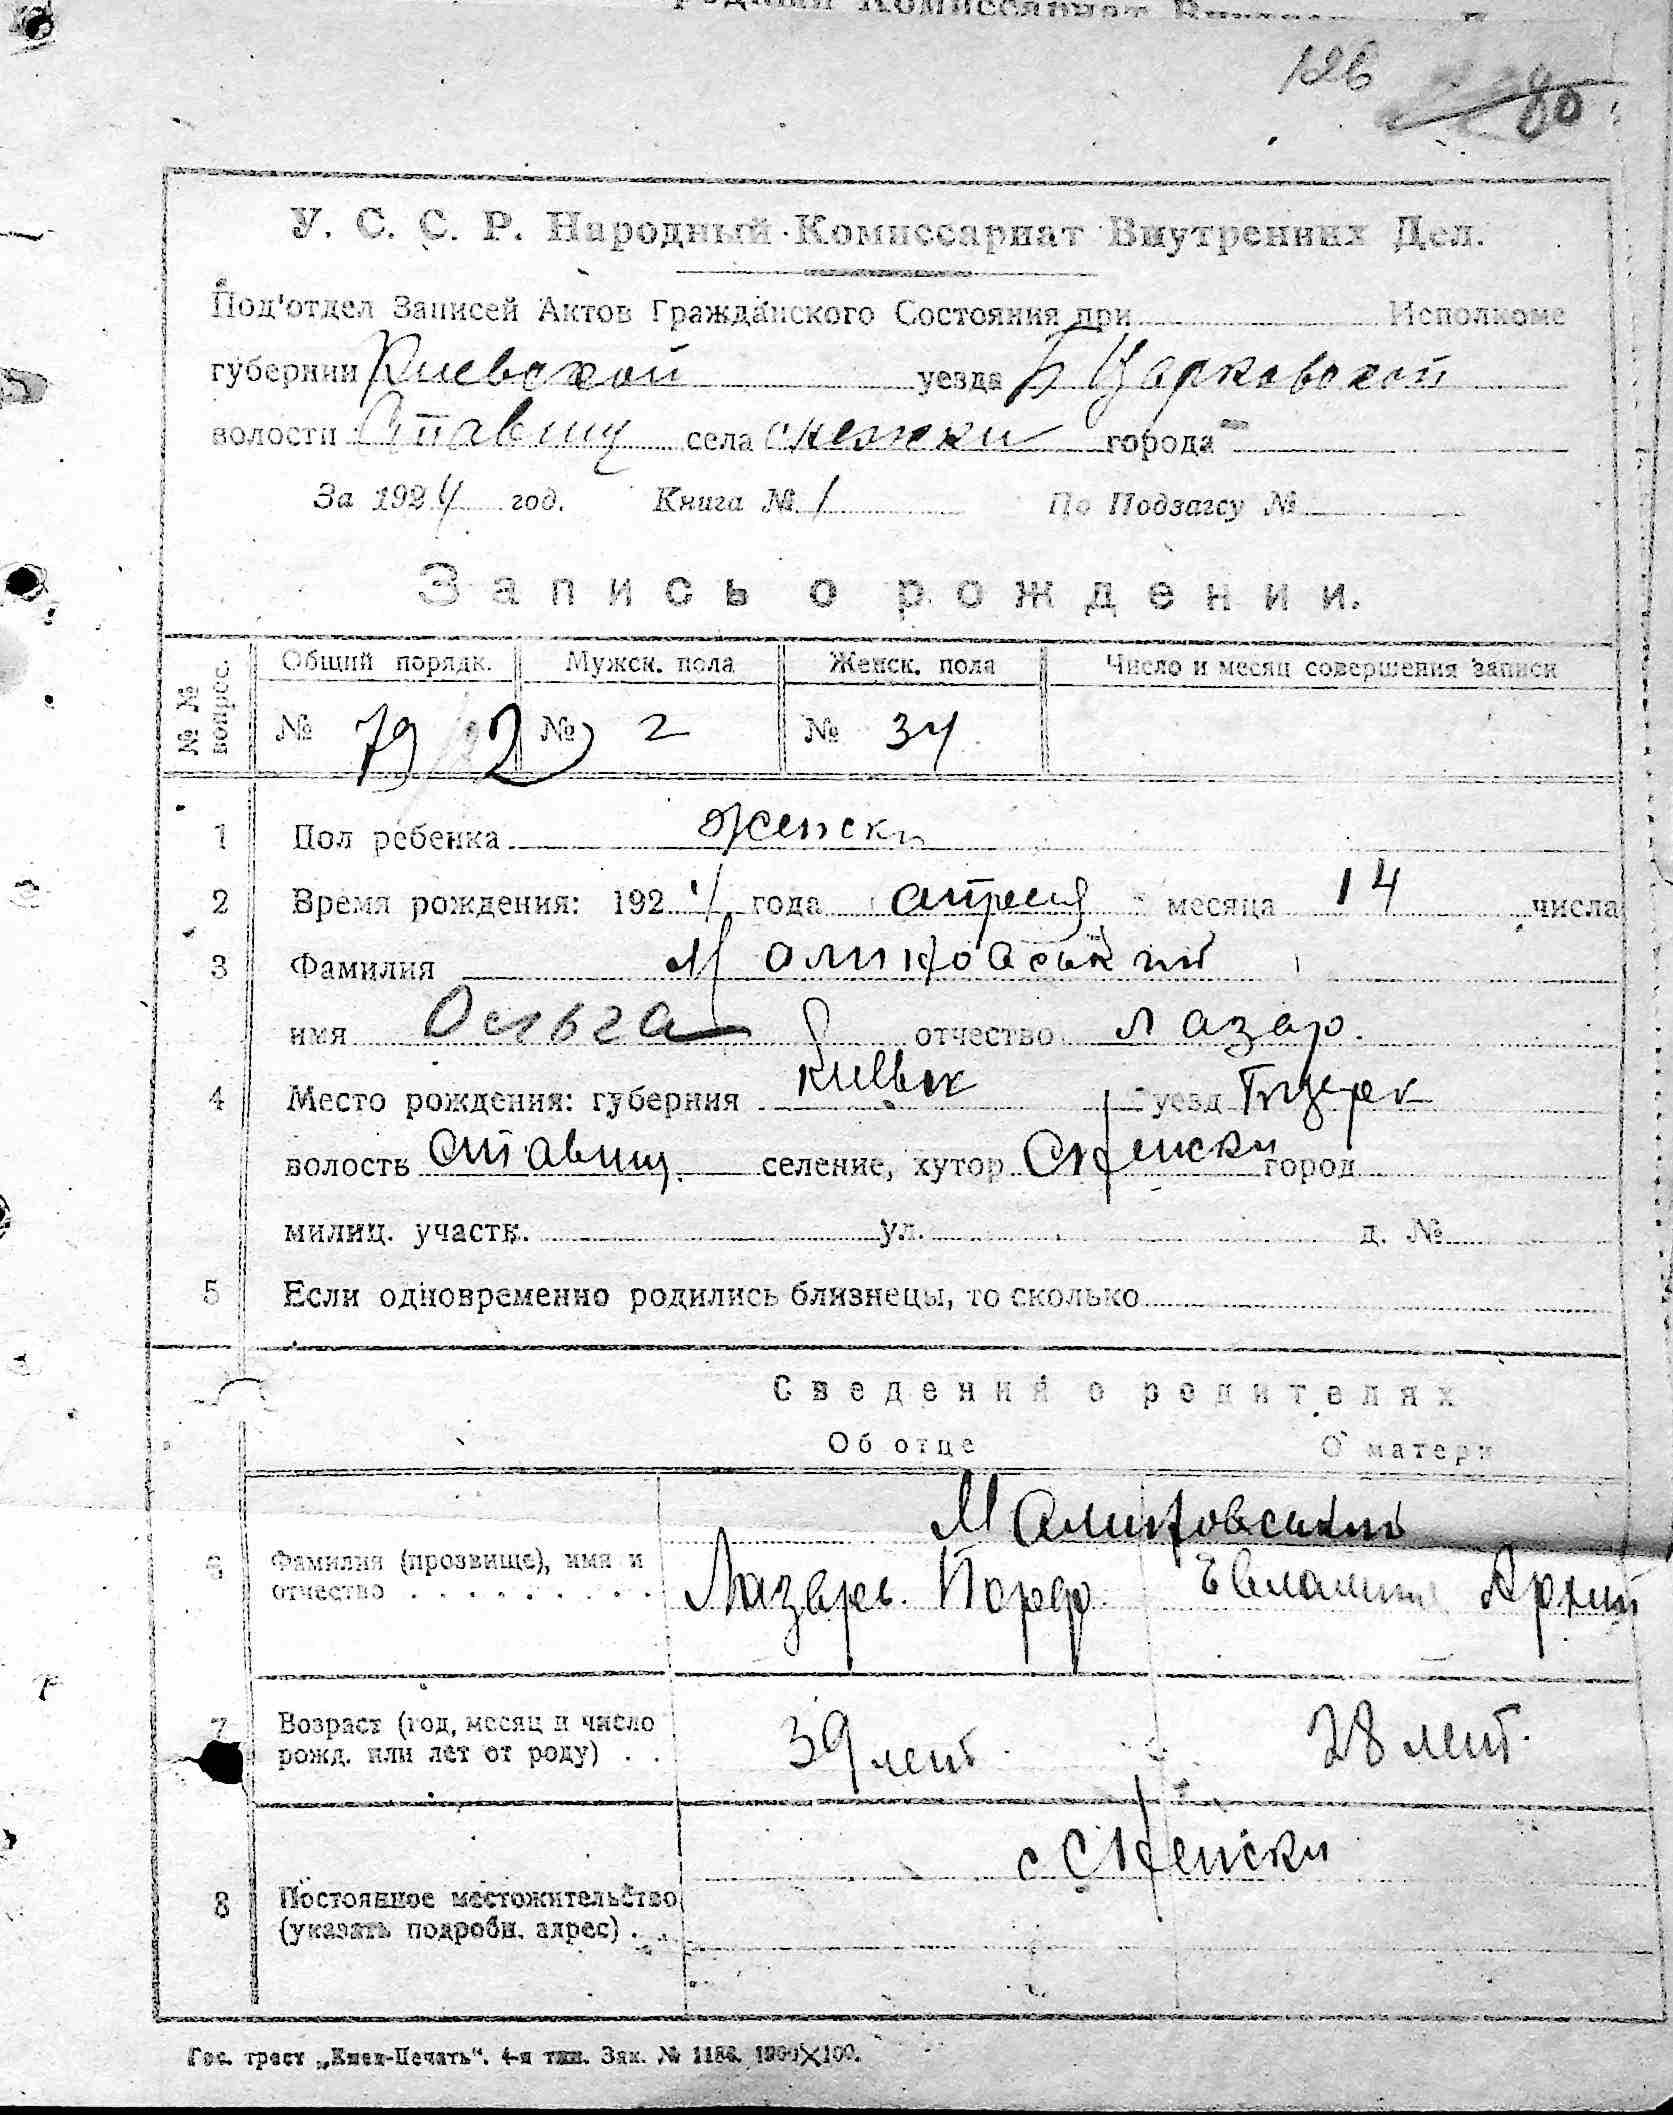 126 80
У. С. С. Р. Народный Комиссариат Внутренних Дел.
Под'отдел Записей Актов Гражданского Состояния при Исполкоме
губернии Киевской уезда Б Царковской
волости Ставищ села снежки города
За 1924 год. Книга № 1 По Подзагсу №
Запись о рождении.
№ № вопрос. Общий порядк. Мужск. пола Женск. пола Число и месяц совершения записи
№ 79 2 № 2 № 34
1 Пол ребенка женски
2 Время рождения: 1924 года апреля месяца 14 числа
3 Фамилия
имя Ольга отчество Лазар.
4 Место рождения: губерния Киевск уезд
волость Ставищ. селение, хутор город
милиц. участк. ул. д. №
5 Если одновременно родились близнецы, то сколько
Сведения о родителях
Об отце О матери
6 Фамилия (прозвище), имя и
отчество Лазарь. Порф.
7 Возраст (год, месяц и число
рожд. или лет от роду) 39 лет 28 лет.
8 Постоянное местожительство
(указать подробн. адрес)
Гос. трест „Киев-Печать“. 4-я тип. Зак. № 1186.